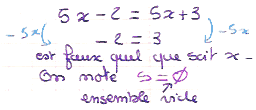 5x - 2 = 5x + 3
- 5x - 5x
- 2 = 3
est faux quel que soit x -
On note S = ∅
ensemble vide